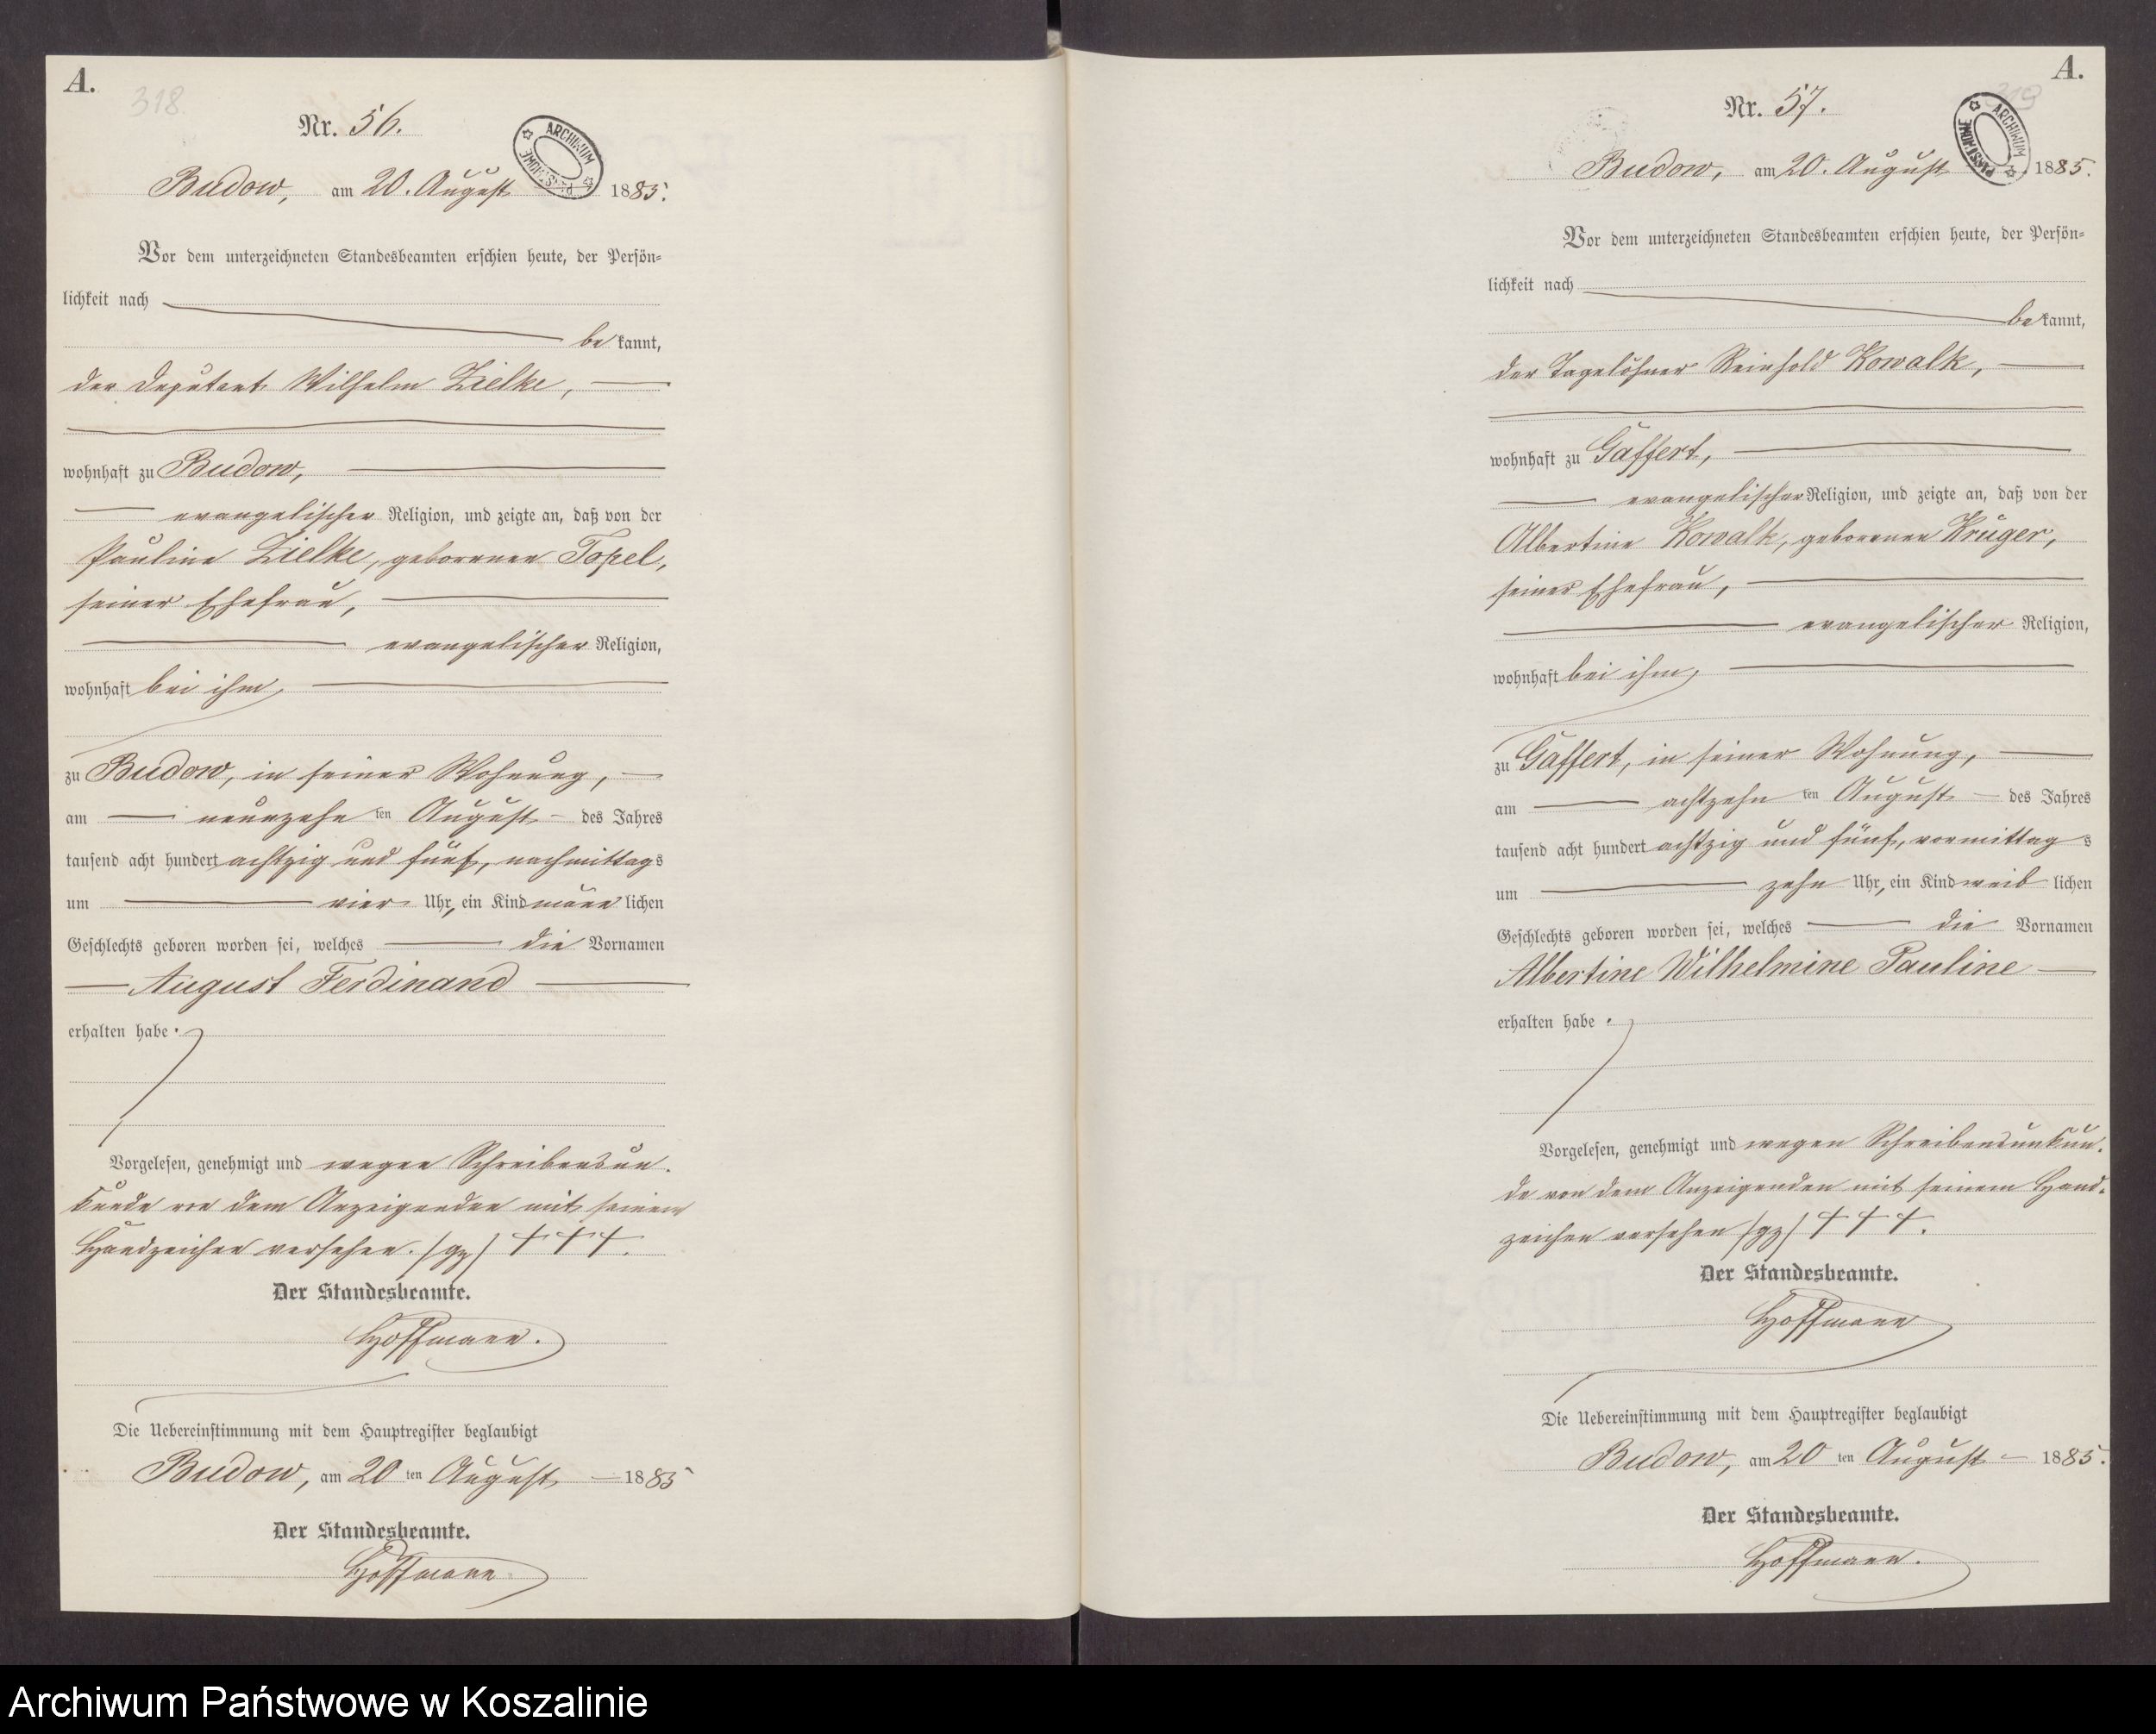 A.
318
Nr. 56.
ARCHIWUM PAŃSTWOWE
Budow, am 20. August 1885.
Vor dem unterzeichneten Standesbeamten erschien heute, der Persön-
lichkeit nach
bekannt,
der Deputant Wilhelm Zielke,
wohnhaft zu Budow,
evangelischer Religion, und zeigte an, daß von der
Pauline Zielke, geborenen Topel,
seiner Ehefrau,
evangelischer Religion,
wohnhaft bei ihm,
zu Budow, in seiner Wohnung,
am neunzehnten August des Jahres
tausend acht hundert achtzig und fünf, nachmittags
um vier Uhr, ein Kind männlichen
Geschlechts geboren worden sei, welches die Vornamen
August Ferdinand
erhalten habe.
Vorgelesen, genehmigt und wegen Schreibensun-
kunde von dem Anzeigenden mit seinem
Handzeichen versehen. (gz) † † †.
Der Standesbeamte.
Hoffmann.
Die Uebereinstimmung mit dem Hauptregister beglaubigt
Budow, am 20ten August 1885
Der Standesbeamte.
Hoffmann
A.
319
Nr. 57.
ARCHIWUM PAŃSTWOWE
Budow, am 20. August 1885.
Vor dem unterzeichneten Standesbeamten erschien heute, der Persön-
lichkeit nach
bekannt,
der Tagelöhner Reinhold Kowalk,
wohnhaft zu Gaffert,
evangelischer Religion, und zeigte an, daß von der
Albertine Kowalk, geborenen Krüger,
seiner Ehefrau,
evangelischer Religion,
wohnhaft bei ihm,
zu Gaffert, in seiner Wohnung,
am achtzehnten August des Jahres
tausend acht hundert achtzig und fünf, vormittags
um zehn Uhr, ein Kind weiblichen
Geschlechts geboren worden sei, welches die Vornamen
Albertine Wilhelmine Pauline
erhalten habe.
Vorgelesen, genehmigt und wegen Schreibensunkun-
de von dem Anzeigenden mit seinem Hand-
zeichen versehen (gz) † † †.
Der Standesbeamte.
Hoffmann
Die Uebereinstimmung mit dem Hauptregister beglaubigt
Budow, am 20ten August 1885.
Der Standesbeamte.
Hoffmann.
Archiwum Państwowe w Koszalinie